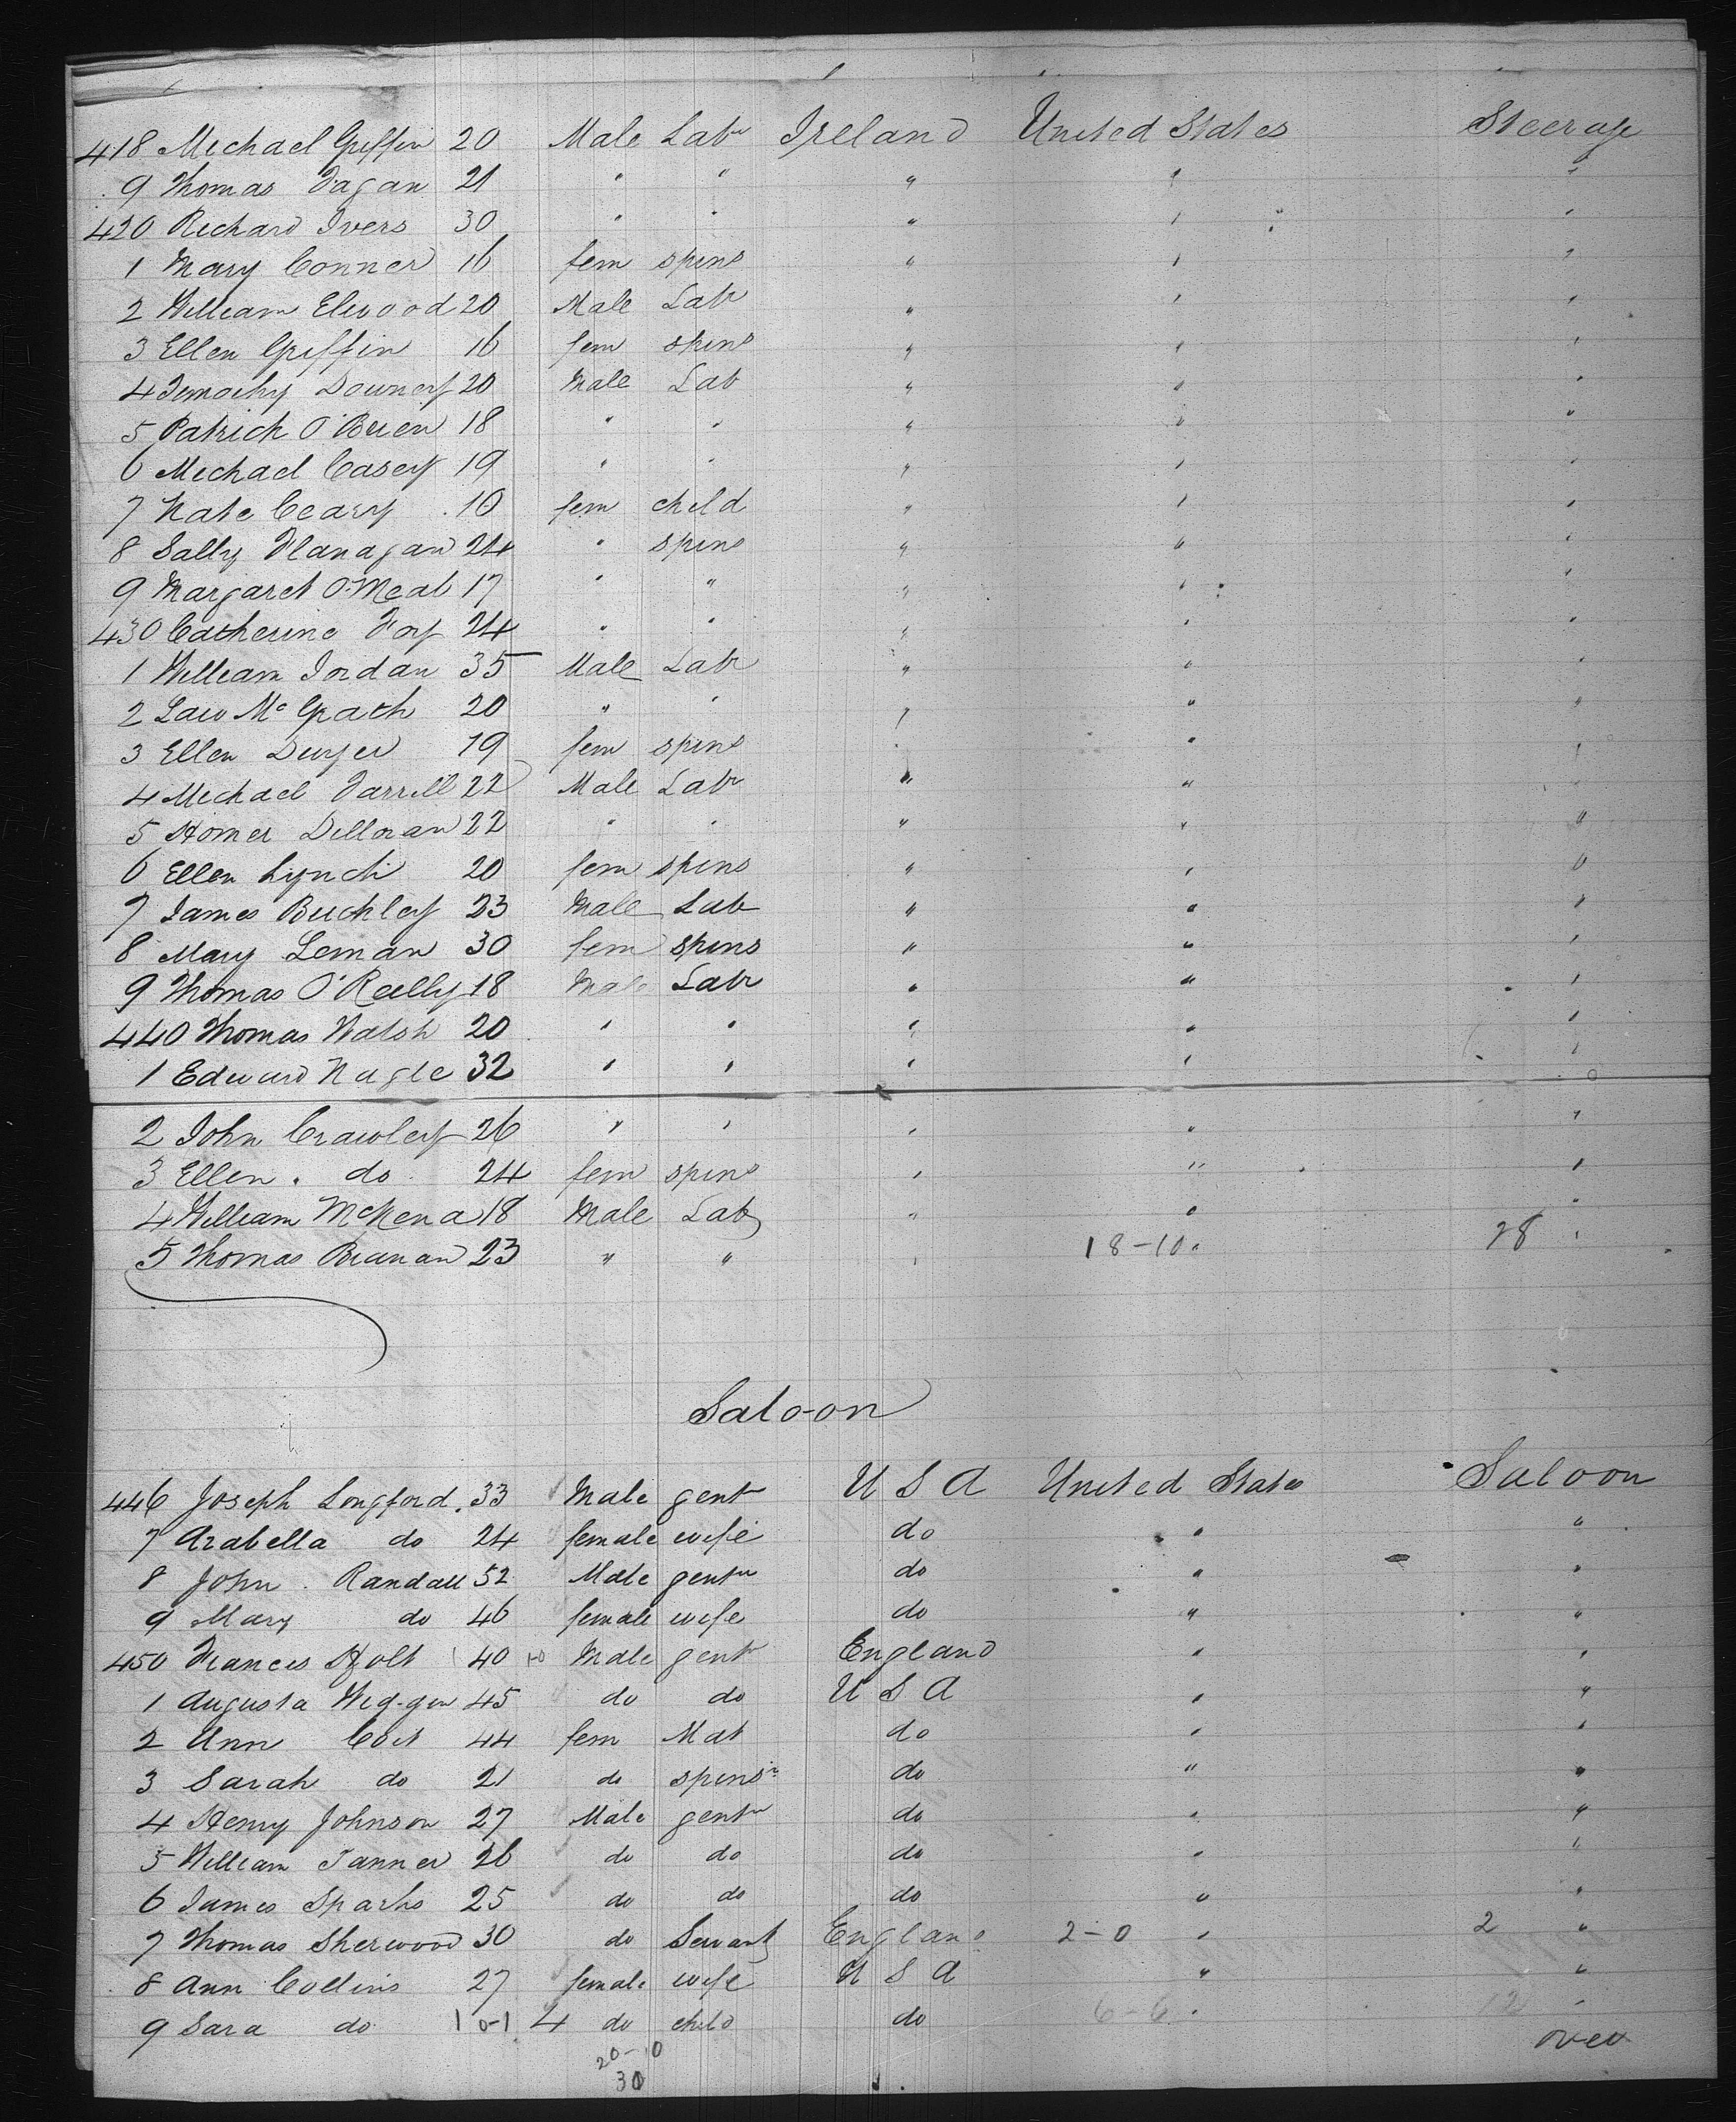 418 Michael Griffin 20 Male Labr Ireland United States Steerage
9 Thomas Fagan 21 " " " " "
420 Richard Ivers 30 " " " " "
1 Mary Conner 16 fem spins " " "
2 William Elwood 20 Male Labr " " "
3 Ellen Griffin 16 fem spins " " "
4 Timothy Downey 20 Male Lab " " "
5 Patrick O'Brien 18 " " " " "
6 Michael Casey 19 " " " " "
7 Kate Ceary 10 fem child " " "
8 Sally Flanagan 24 " spins " " "
9 Margaret O'Meal 17 " " " " "
430 Catherine Foy 24 " " " " "
1 William Jordan 35 Male Labr " " "
2 Law McGrath 20 " " " " "
3 Ellen Dwyer 19 fem spins " " "
4 Michael Farrell 22 Male Labr " " "
5 Homer Dilloran 22 " " " " "
6 Ellen Lynch 20 fem spins " " "
7 James Buckley 23 Male Lab " " "
8 Mary Leman 30 fem spins " " "
9 Thomas O'Reilly 18 Male Labr " " "
440 Thomas Walsh 20 " " " " "
1 Edward Nagle 32 " " " " "
2 John Crawley 26 " " " " "
3 Ellen do 24 fem spins " " "
4 William McKena 18 Male Lab " " "
5 Thomas Branan 23 " " " 18-10 " 28 "
Saloon
446 Joseph Longford 33 Male gentn U S A United States Saloon
7 Arabella do 24 female wife do " "
8 John Randall 52 Male gentn do " "
9 Mary do 46 female wife do " "
450 Frances Holt 40 1-0 Male gentn England " "
1 Augusta Wiggin 45 do do U S A " "
2 Ann Coit 44 fem Mat do " "
3 Sarah do 21 do spinsr do " "
4 Henry Johnson 27 Male gentn do " "
5 William Tanner 26 do do do " "
6 James Sparks 25 do do do " "
7 Thomas Sherwood 30 do Servant England 2-0 " 2 "
8 Ann Collins 27 female wife U S A " "
9 Sara do 10-1 4 do child do 6-6 " 12 "
20-10 over
30